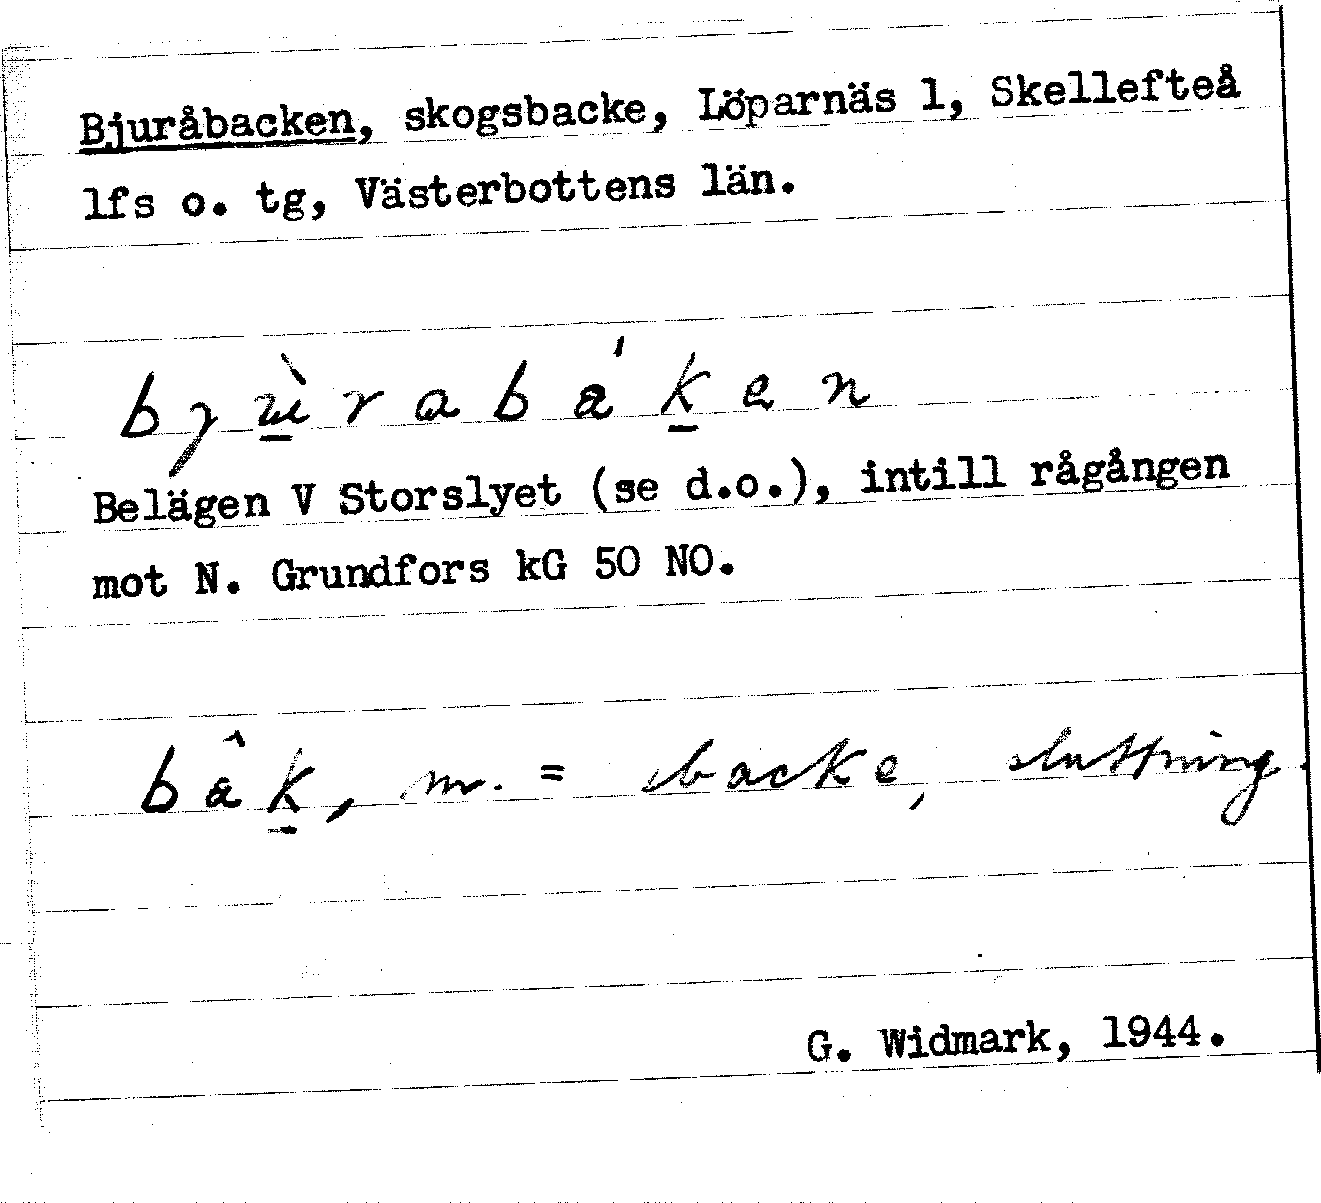 Bjuråbacken, skogsbacke, Löparnäs 1, Skellefteå
lfs o. tg, Västerbottens län.
bjʉ̱̀rabáḵen
Belägen V Storslyet (se d.o.), intill rågången
mot N. Grundfors kG 50 NO.
bâḵ, m. = backe, sluttning.
G. Widmark, 1944.